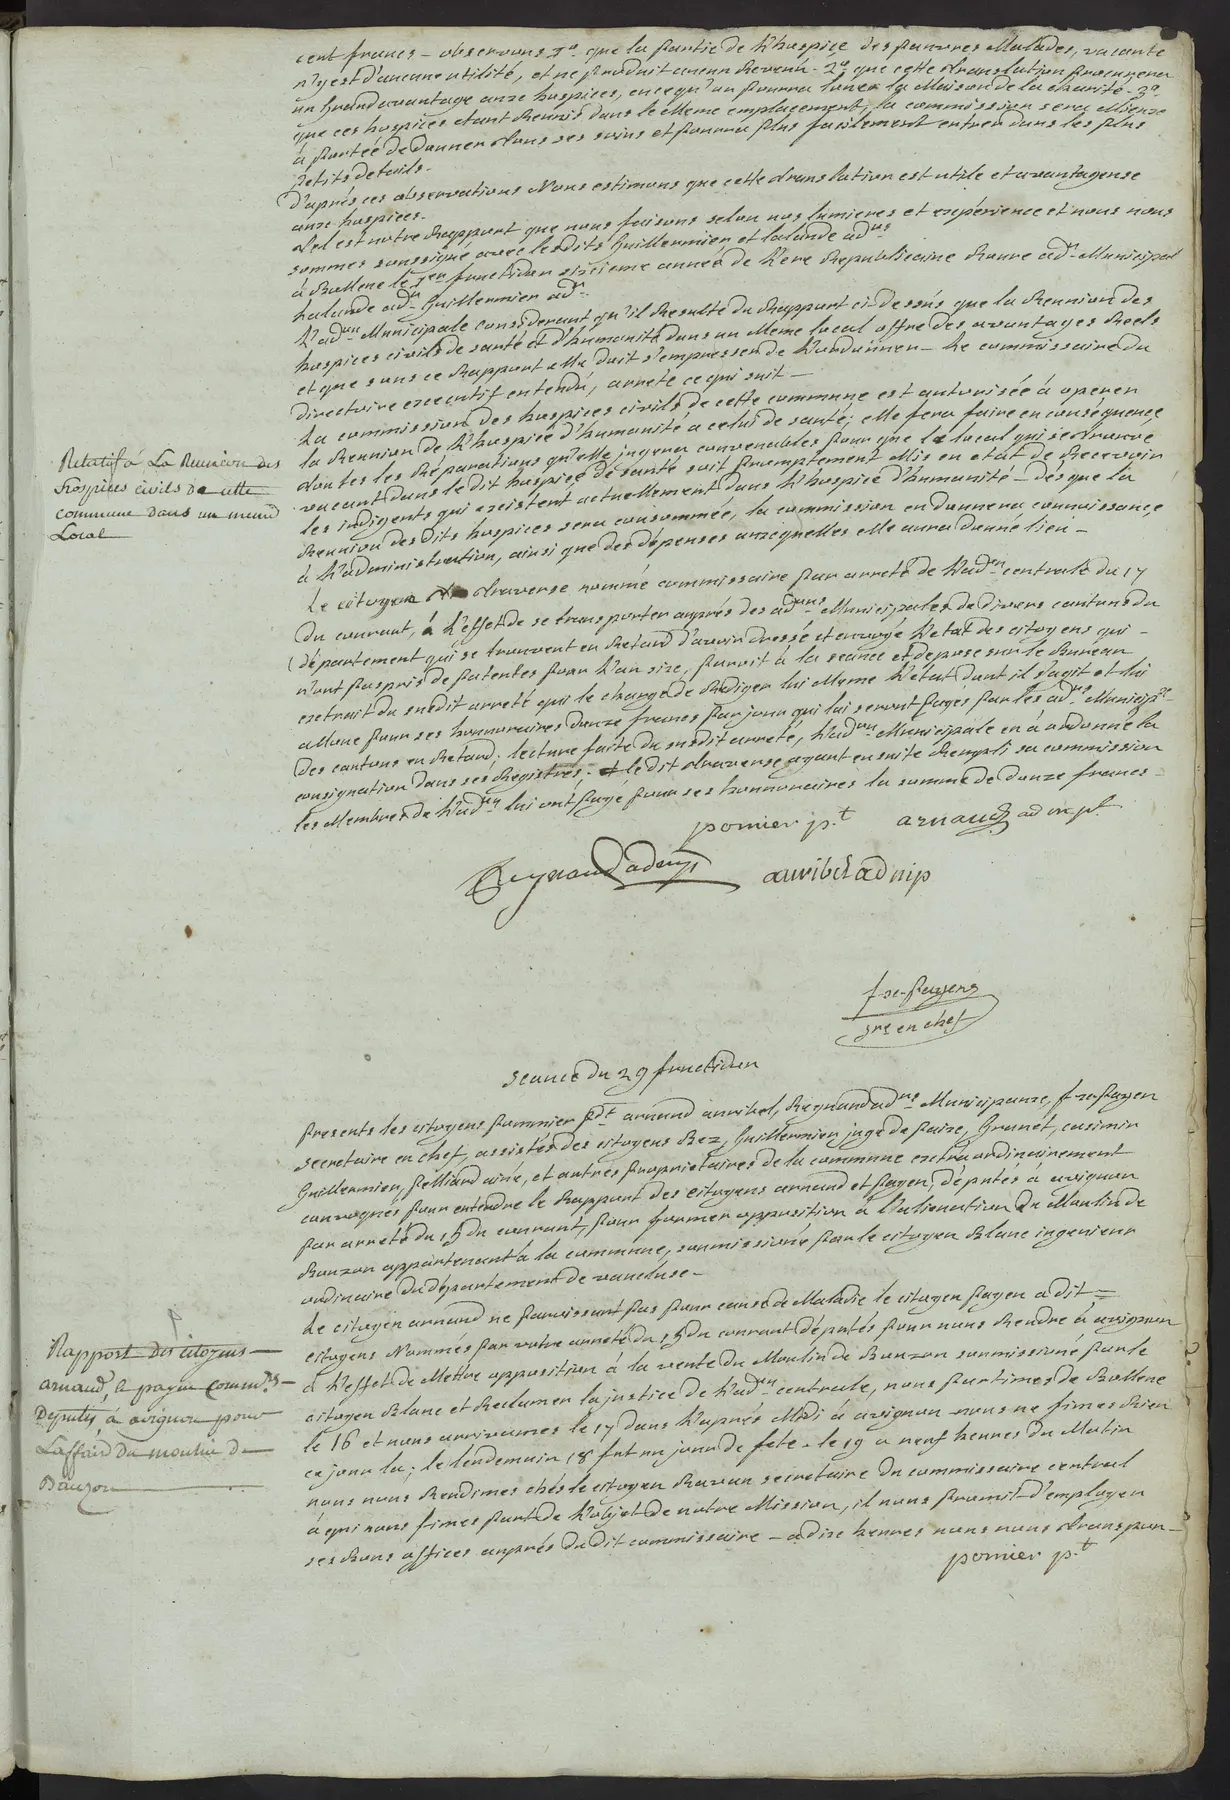 cent francs – observons 1° que la partie de l'hospice des pauvres Malades, vacante
n'y est d'aucune utilité, et ne produit aucun Revenu. 2° que cette translation procurera
un grand avantage aux hospices, en ce qu'on pourra louer la Maison de la charité. 3°
que ces hospices etant Reunis dans le Meme emplacement, la commission sera Mieux
à portée de donner tous ses soins et pourra plus facilement entrer dans les plus
petits details.
d'aprés ces observations Nous estimons que cette translation est utile et avantageuse
aux hospices.
tel est notre Rapport que nous faisons selon nos lumieres et expérience et nous nous
sommes soussigné avec lesdits Guillermier et lalande adrs
à Bollene le 1er fructidor sixieme année de l'ere Republicaine Roure adr Municipal
Lalande adr Guillermier adr.
L'adon Municipale considerant qu'il Resulte du Rapport ci-dessus que la Reunion des
hospices civils de santé et d'humanité dans un Meme local offre des avantages Reels
et que sous ce Rapport elle doit s'empresser de l'ordonner – Le commissaire du
directoire executif entendu, arrete ce qui suit –
La commission des hospices civils de cette commune est autorisée à operer
la Reunion de l'hospice d'humanité a celui de santé; elle fera faire en conséquence
toutes les Réparations qu'elle jugera convenables pour que le local qui se trouve
vacant dans le dit hospice de santé soit promptement Mis en etat de Recevoir
les indigents qui existent actuellement dans l'hospice d'humanité – dés que la
Reunion des dits hospices sera consommée, la commission en donnera connoissance
à l'administration, ainsi que des dépenses auxquelles elle aura donné lieu –
Relatif á La Reunion des
Hospices civils de cette
commune dans un meme
Local
Le citoyen traverse nommé commissaire par arreté de l'adon centrale du 17
du courant, à l'effet de se transporter auprés des adons Municipales de divers cantons du
département qui se trouvent en Retard d'avoir dressé et envoyé l'etat des citoyens qui –
n'ont pas pris de patentes pour l'an six, paroit à la seance et depose sur le Bureau
extrait du susdit arreté qui le charge de Rediger lui Meme l'état dont il s'agit et lui
alloue pour ses honnoraires douze francs par jour qui lui seront payés par les adrs Municip.
des cantons en Retard; lecture faite du susdit arreté, l'adon Municipale en a ordonné la
consignation dans ses Registres; le dit traverse ayant ensuite Rempli sa commission
les Membres de l'adon lui ont payé pour ses honnoraires la somme de douze francs –
pomier p.t arnaud ad mpl
Reynaud adm
auribel ad mp
f xe payen
sre en chef
seance du 29 fructidor
Presents les citoyens pommier pdt arnaud auribel, Reynaud adrs Municipaux, f xe payen
secretaire en chef, assistés des citoyens Rez, Guillermier juge de paix, Granet, casimir
Guillermier, pelliard ainé, et autres proprietaires de la commune extraordinairement
convoqués pour entendre le Rapport des citoyens arnaud et payen, députés à avignon
par arreté du 15 du courant, pour former opposition à l'alienation du Moulin de
Bauzon appartenant à la commune, soumissioné par le citoyen Blanc ingenieur
ordinaire du département de vaucluse –
Le citoyen arnaud ne paroissant pas pour cause de Maladie le citoyen payen a dit =
citoyens Nommés par votre arreté du 15 du courant députés pour nous Rendre à avignon
à l'effet de Mettre opposition à la vente du Moulin de Bauzon soumissioné par le
citoyen Blanc et Reclamer la justice de l'adon centrale, nous partimes de Bollene
le 16 et nous arrivames le 17 dans l'aprés Midi à avignon – nous ne fimes Rien
ce jour la; le lendemain 18 fut un jour de fete – le 19 a neuf heures du Matin
nous nous Rendimes chés le citoyen Ravan secretaire du commissaire central
à qui nous fimes part de l'objet de notre Mission, il nous promit d'employer
ses bons offices auprés du dit commissaire – a dix heures nous nous transpor –
Rapport des citoyens –
arnaud, & payen Comm.res –
Deputés à avignon pour
L'affaire du moulin de –
Bauzon
pomier p.t